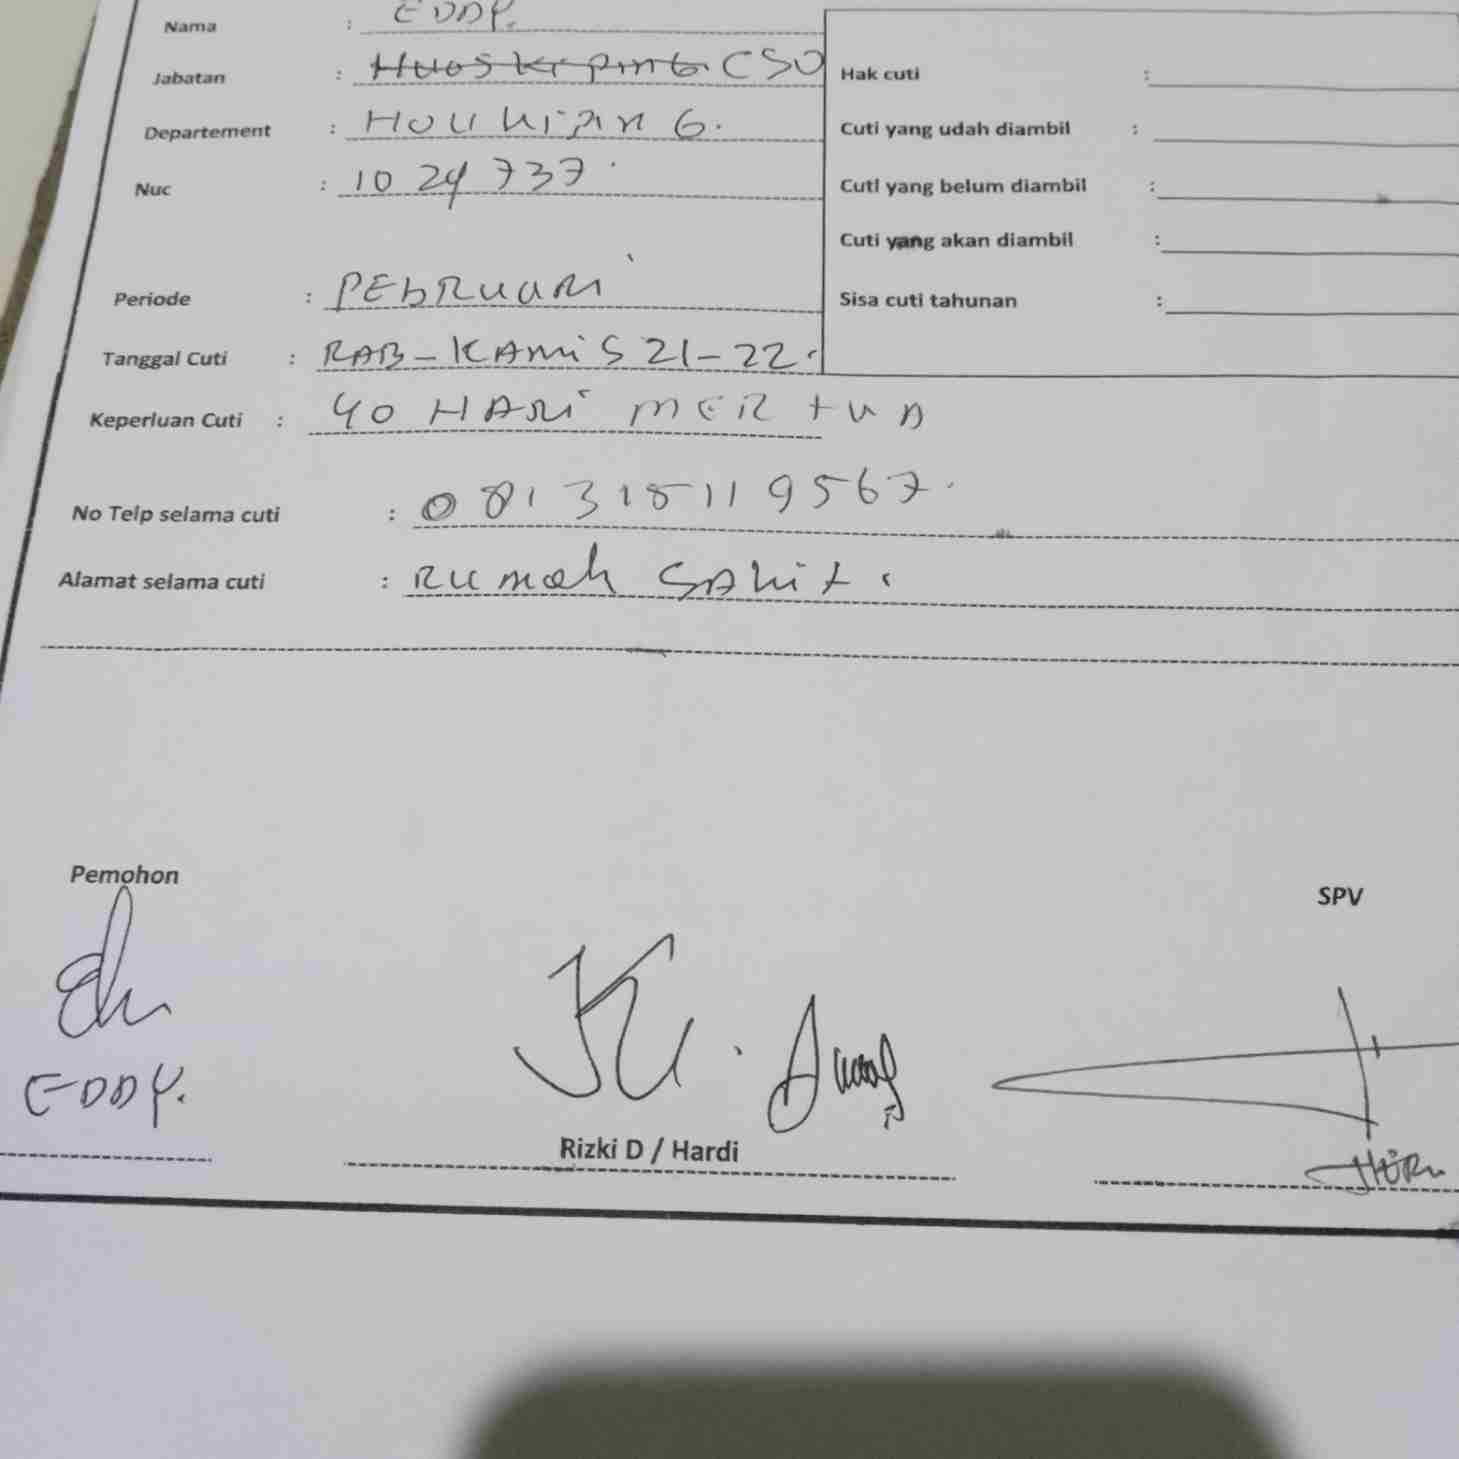 Nama : EDDY.
Jabatan : CSO
Departement : HOUKIPING.
Nuc : 10 24 737
Hak cuti :
Cuti yang udah diambil :
Cuti yang belum diambil :
Cuti yang akan diambil :
Sisa cuti tahunan :
Periode : PEbRUARI
Tanggal Cuti : RAB-KAMIS 21-22.
Keperluan Cuti : 40 HARI MERTUA
No Telp selama cuti : 081315119567.
Alamat selama cuti : RUMah SAKIT.
Pemohon
SPV
EDDY.
Rizki D / Hardi